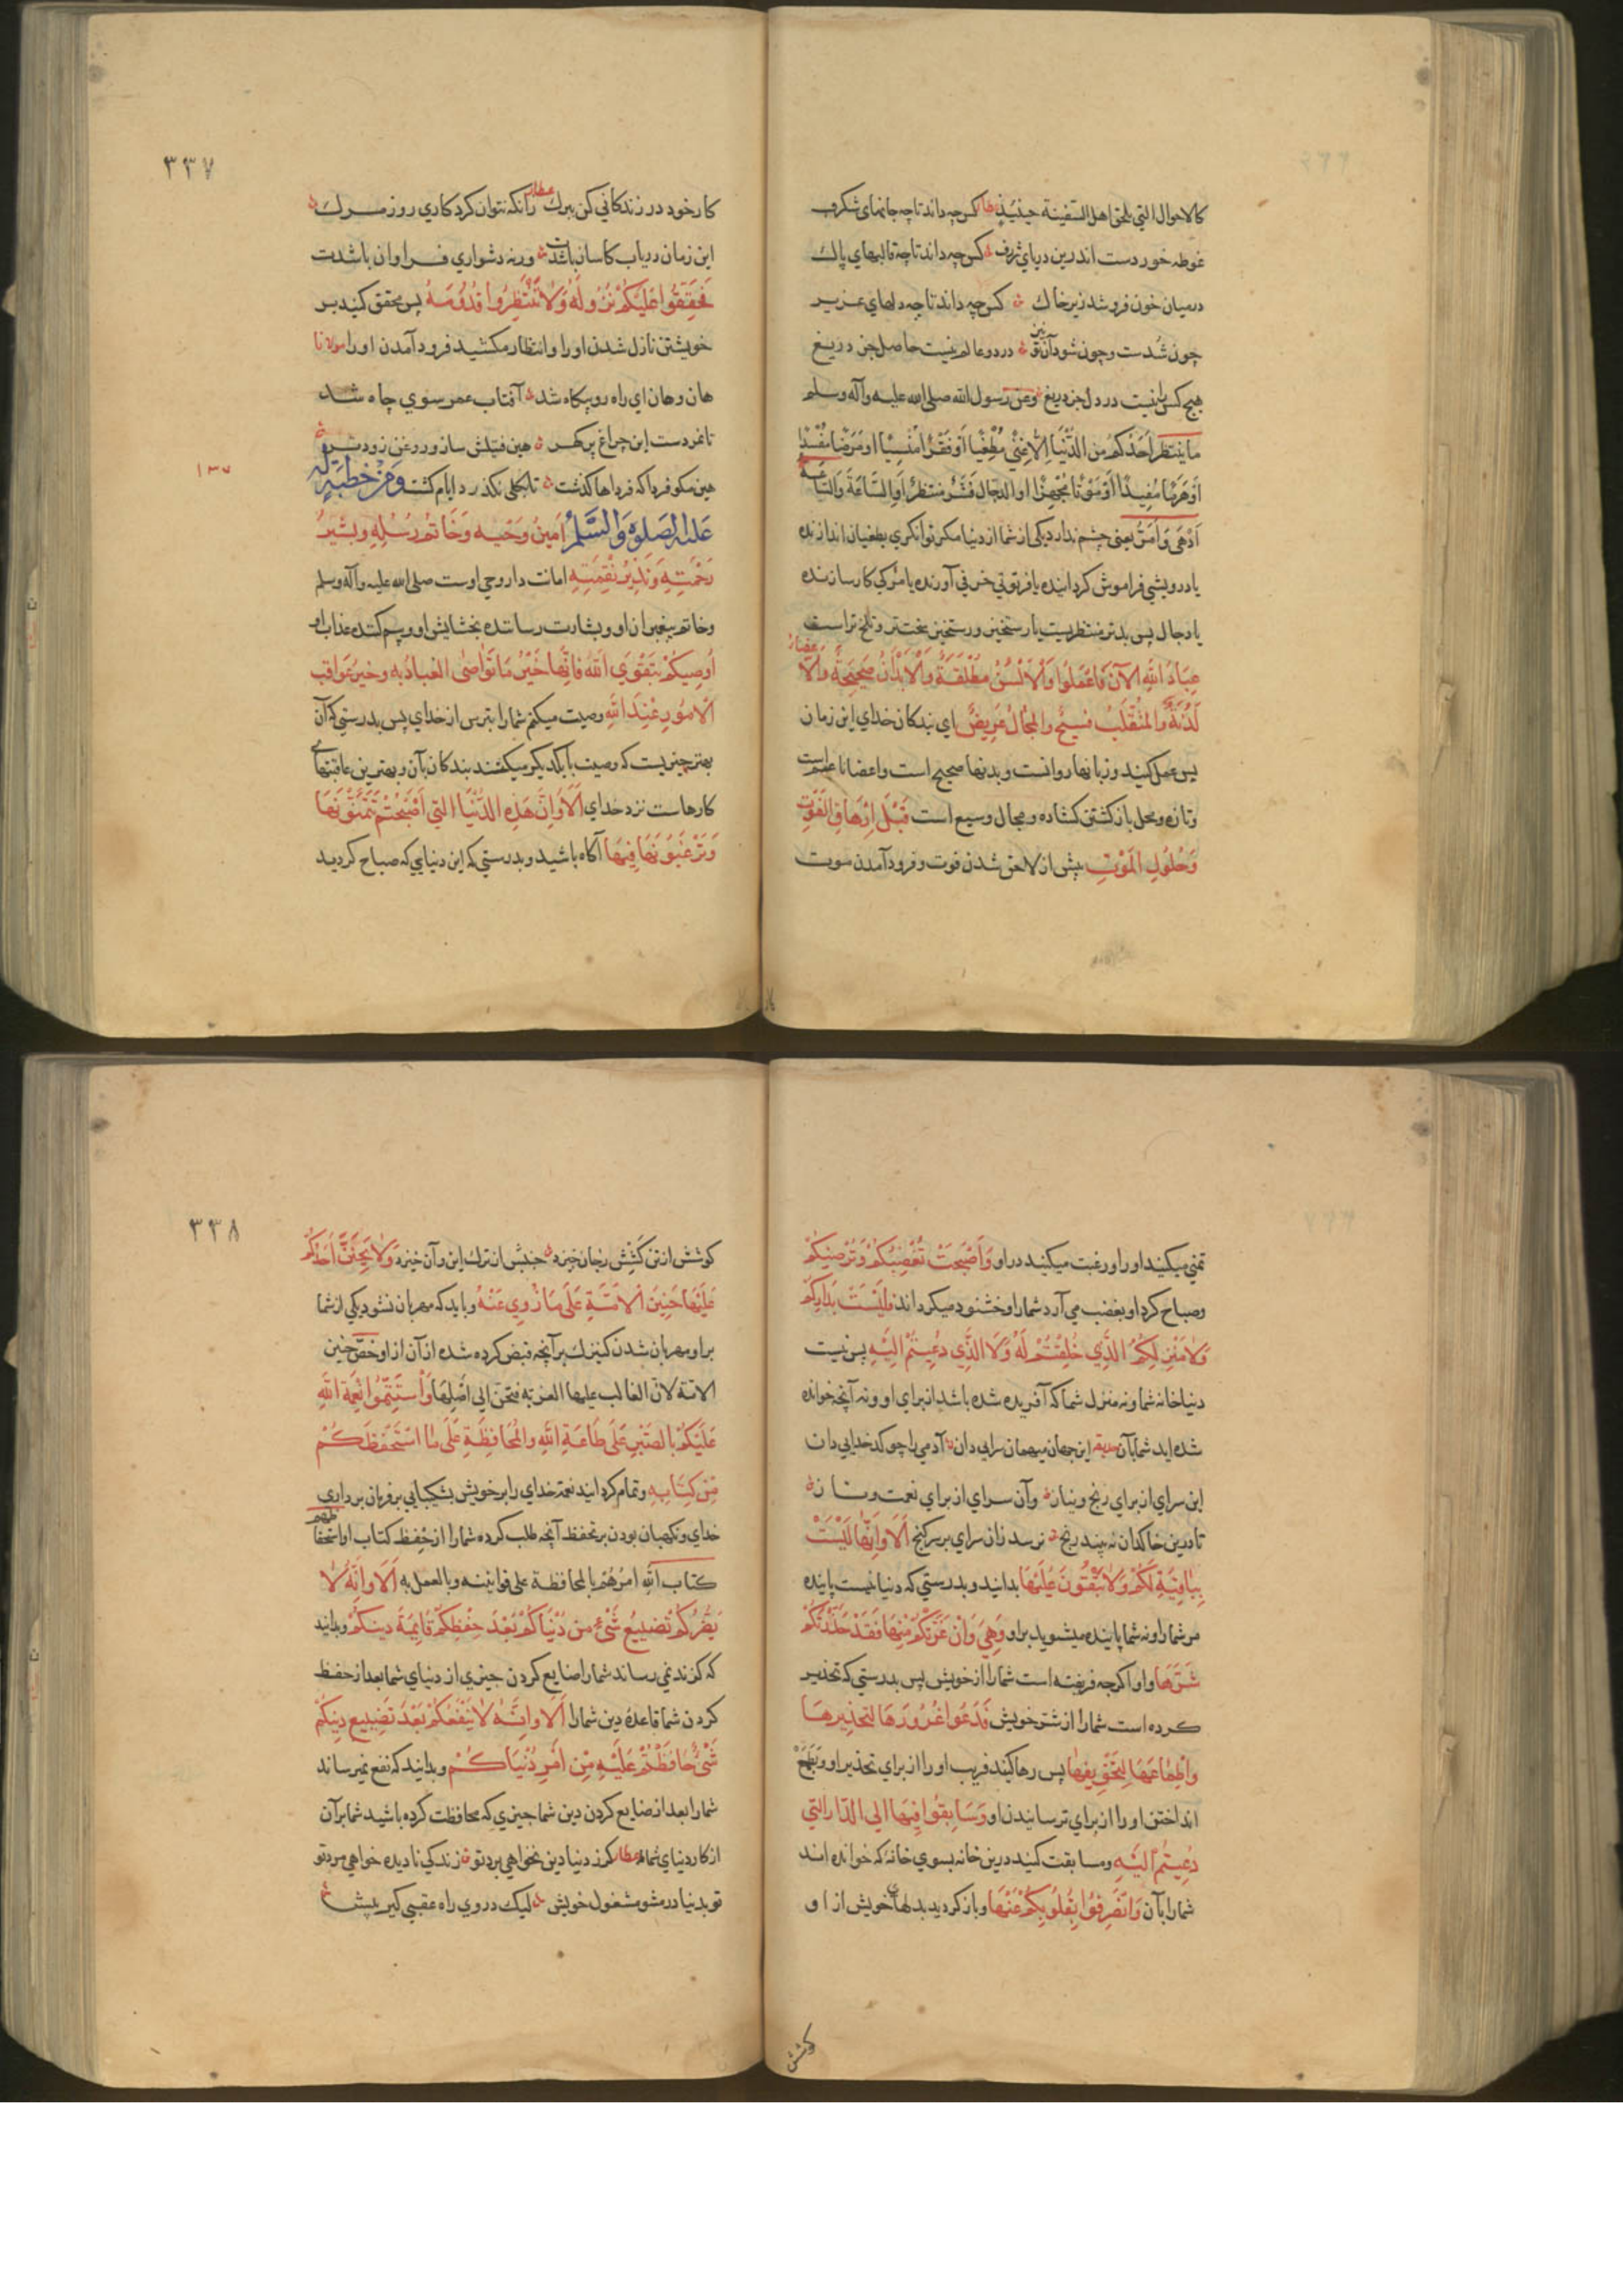 كالاحوال التي تلحق اهل السفينة حينئذ عطار كس چه داند تا چه جانهاي شكرف
غوطه خوردست اندرين درياي ژرف كس چه داند تا چه قالبهاي پاك
درميان خون فروشد زير خاك كس چه داند تا چه دلهاي عزيز
چون شدست و چون شود آن نيز در دو عالم نيست حاصل جز دريغ
هيچ كس را نيست در دل جز دريغ وعن رسول الله صلى الله عليه وآله وسلم
ما ينتظر احدكم من الدنيا الا غنى مطغيا او فقرا منسيا او مرضا مفسدا
او هرما مفيدا او موتا مجهزا او الدجال فشر منتظر او الساعة والساعة
ادهى وامر يعني چشم ندارد يكي از شما از دنيا مكر توانكري بطغيان اندازنده
يا درويشي فراموش كرداننده يا فرتوتي خرفي آورنده يا مركي كارسازنده
يا دجال پس بدتر منتظريست يا رستخيز و رستخيز سختتر و تلخ تراست
عباد الله الآن فاعملوا والالسن مطلقة والابدان صحيحة والاعضاء
لدنة والمنقلب فسيح والمجال عريض اي بندكان خداي اين زمان
پس عمل كنيد و زبانها روانست و بدنها صحيح است واعضا ناعم است
وتازه و محل باز كشتن كشاده و مجال وسيع است قبل ارهاق الفوت
وحلول الموت پيش از لاحق شدن فوت و فرود آمدن موت
٣٣٧
كار خود در زندكاني كن ببرك عطار زانكه نتوان كرد كاري روز مرك
اين زمان درياب كاسان باشدت ورنه دشواري فراوان باشدت
فحققوا عليكم نزوله ولا تنتظروا قدومه پس محقق كنيد بر
خويشتن نازل شدن او را و انتظار مكشيد فرود آمدن او را مولانا
هان وهان اي راه رو بيكاه شد آفتاب عمر سوي چاه شد
تا نمردست اين چراغ پر كهر هين فتيلش ساز و روغن زودتر
هين مكو فردا كه فرداها كذشت تا بكلي نكذرد ايام كشت ومن خطبة له
١٣٧
عليه الصلوة والسلم امين وحيه وخاتم رسله وبشير
رحمته ونذير نقمته امانت دار وحي اوست صلى الله عليه وآله وسلم
وخاتم پيغمبران او و بشارت رساننده بخشايش او و بيم كننده عذاب او
اوصيكم بتقوى الله فانها خير ما تواصى العباد به وخير عواقب
الامور عند الله وصيت ميكنم شما را بترس از خداي پس بدرستي كه آن
بهتر چيزيست كه وصيت با يكديكر ميكنند بندكان بآن و بهترين عاقبتهاي
كارهاست نزد خداي الا وان هذه الدنيا التي اصبحتم تتمنونها
وترغبون فيها آكاه باشيد و بدرستي كه اين دنيايي كه صباح كرديد
تمني ميكنيد او را و رغبت ميكنيد در او واصبحت تغضبكم وترضيكم
وصباح كرد او بغضب مي آرد شما را و خشنود ميكرداند فليست بداركم
ولا منزلكم الذي خلقتم له ولا الذي دعيتم اليه پس نيست
دنيا خانه شما و نه منزل شما كه آفريده شده باشد از براي او و نه آنچه خوانده
شده ايد شما بآن حديقه اين جهان ميهمان سرايي دان آدمي را چو كدخدايي دان
اين سراي از براي رنج و نياز وآن سراي از براي نعمت و ناز
تا درين خاكدان نه بيند رنج نرسد زان سراي بر سر كنج الا وانها ليست
بباقية لكم ولا تبقون عليها بدانيد و بدرستي كه دنيا نيست پاينده
مر شما را و نه شما پاينده ميشويد بر او وهي وان غرتكم منها فقد حذرتكم
شرها و او اكرچه فريفته است شما را از خويش پس بدرستي كه تحذير
كرده است شما را از شر خويش فدعوا غرورها لتحذيرها
واطماعها لتخويفها پس رها كنيد فريب او را از براي تحذير او و بطمع
انداختن او را از براي ترسانيدن او وسابقوا فيها الى الدار التي
دعيتم اليها و مسابقت كنيد درين خانه بسوي خانه كه خوانده اند
شما را بآن وانصرفوا بقلوبكم عنها و باز كرديد بدلهاي خويش از او
كوشش
٣٣٨
كوشش از تن كشش ز جان خيزد جنبش از ترك اين و آن خيزد ولا يحنن احدكم
عليها حنين الامة على ما زوي عنه و بايد كه مهربان نشود يكي از شما
بر او مهربان شدن كنيزك بر آنچه قبض كرده شده از آن از او خص حنين
الامة لان الغالب عليها الغربة فتحن الى اصلها واستتموا نعمة الله
عليكم بالصبر على طاعة الله والمحافظة على ما استحفظكم
من كتابه و تمام كردانيد نعمة خداي را بر خويش بشكيبايي بر فرمان برداري
خداي و نكهبان بودن بر تحفظ آنچه طلب كرده شما را از حفظ كتاب او استحفاظهم
كتاب الله امرهم بالمحافظة على قوانينه و بالعمل به الا وانه لا
يضركم تضييع شئ من دنياكم بعد حفظكم قايمة دينكم و بدانيد
كه كزند نمي رساند شما را ضايع كردن چيزي از دنياي شما بعد از حفظ
كردن شما قاعده دين شما را الا وانه لا ينفعكم بعد تضييع دينكم
شئ حافظتم عليه من امر دنياكم و بدانيد كه نفع نميرساند
شما را بعد از ضايع كردن دين شما چيزي كه محافظت كرده باشيد شما بر آن
از كار دنياي شما عطار كرز دنيا دين نخواهي برد تو زندكي ناديده خواهي مرد تو
تو بدنيا در مشو مشغول خويش ليك در وي راه عقبي كير پيش